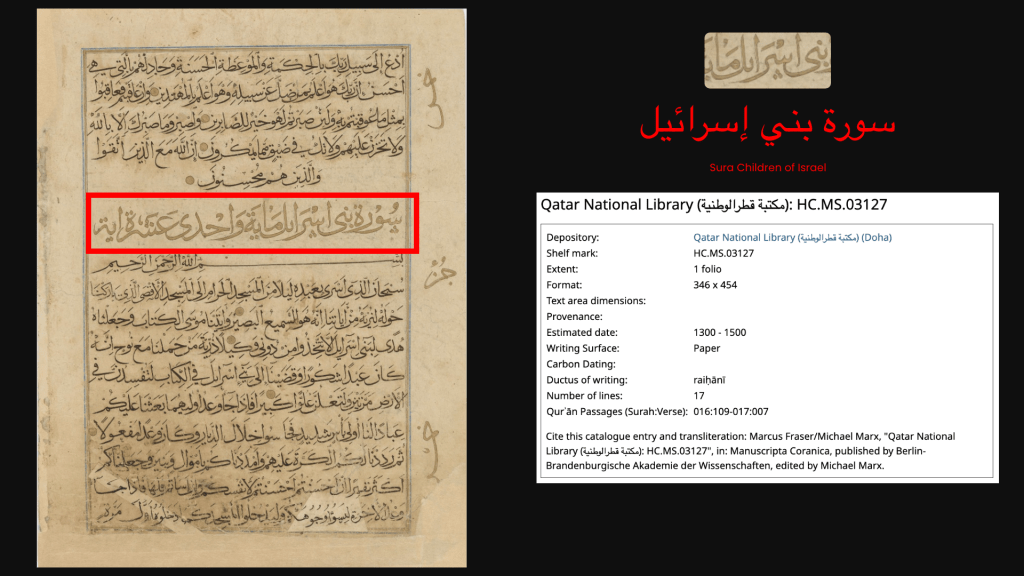 ادع الى سبيل ربك بالحكمة والموعظة الحسنة وجادلهم بالتي هي
احسن ان ربك هو اعلم بمن ضل عن سبيله وهو اعلم بالمهتدين وان عاقبتم فعاقبوا
بمثل ما عوقبتم به ولئن صبرتم لهو خير للصابرين واصبر وما صبرك الا بالله
ولا تحزن عليهم ولا تك في ضيق مما يمكرون ان الله مع الذين اتقوا
والذين هم محسنون
سورة بنى اسرايل ماية واحدى عشر اية
بسم الله الرحمن الرحيم
سبحان الذي اسرى بعبده ليلا من المسجد الحرام الى المسجد الاقصى الذي باركنا
حوله لنريه من اياتنا انه هو السميع البصير واتينا موسى الكتاب وجعلناه
هدى لبني اسرايل الا تتخذوا من دوني وكيلا ذرية من حملنا مع نوح انه
كان عبدا شكورا وقضينا الى بني اسرايل في الكتاب لتفسدن في
الارض مرتين ولتعلن علوا كبيرا فاذا جا وعد اوليهما بعثنا عليكم
عبادا لنا اولي باس شديد فجاسوا خلال الديار وكان وعدا مفعولا
ثم رددنا لكم الكرة عليهم وامددناكم باموال وبنين وجعلناكم
اكثر نفيرا ان احسنتم احسنتم لانفسكم وان اساتم فلها فاذا جا
وعد الاخرة ليسوا وجوهكم وليدخلوا المسجد كما دخلوه اول مرة
بنى اسرايل ماية
سورة بني إسرائيل
Sura Children of Israel
Qatar National Library (مكتبة قطرالوطنية): HC.MS.03127
Depository: Qatar National Library (مكتبة قطرالوطنية) (Doha)
Shelf mark: HC.MS.03127
Extent: 1 folio
Format: 346 x 454
Text area dimensions:
Provenance:
Estimated date: 1300 - 1500
Writing Surface: Paper
Carbon Dating:
Ductus of writing: raiḥānī
Number of lines: 17
Qurʾān Passages (Surah:Verse): 016:109-017:007
Cite this catalogue entry and transliteration: Marcus Fraser/Michael Marx, "Qatar National
Library (مكتبة قطرالوطنية): HC.MS.03127", in: Manuscripta Coranica, published by Berlin-
Brandenburgische Akademie der Wissenschaften, edited by Michael Marx.